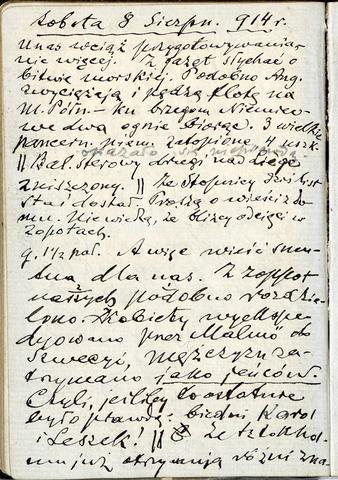 Sobota 8 Sierpn. 914 r.
U nas wciąż przygotowywania
nic więcej. Z gazet słychać o
bitwie morskiej. Podobno Ang.
zwyciężają i pędzą flotę na
M. Półn – ku brzegom Niemiec
we dwa ognie biorąc. 3 wielkie
pancern. niem. zatopione, 4 uszk.
okazało się nieprawdą
|| Bal. sterowy drugi nad Liège
zniszczony. || Ze Stopnicy
dostał. Proszą o wieści z do
mu. Nie wiedzą, że bliscy odcięci w
Zopotach.
g. 1½ pał. A więc wieść smu-
tna dla nas. Z Zoppot
naszych podobno rozdzie-
lono. Kobiety wyekspe-
dyowano przez Malmö do
Szwecyi, mężczyzn za-
trzymano jako jeńców.
Czyli, jeśliby to ostatnie
było prawdą – biedni Karol
i Leszek! || Ze Sztokhol-
mu już otrzymują różni zna-